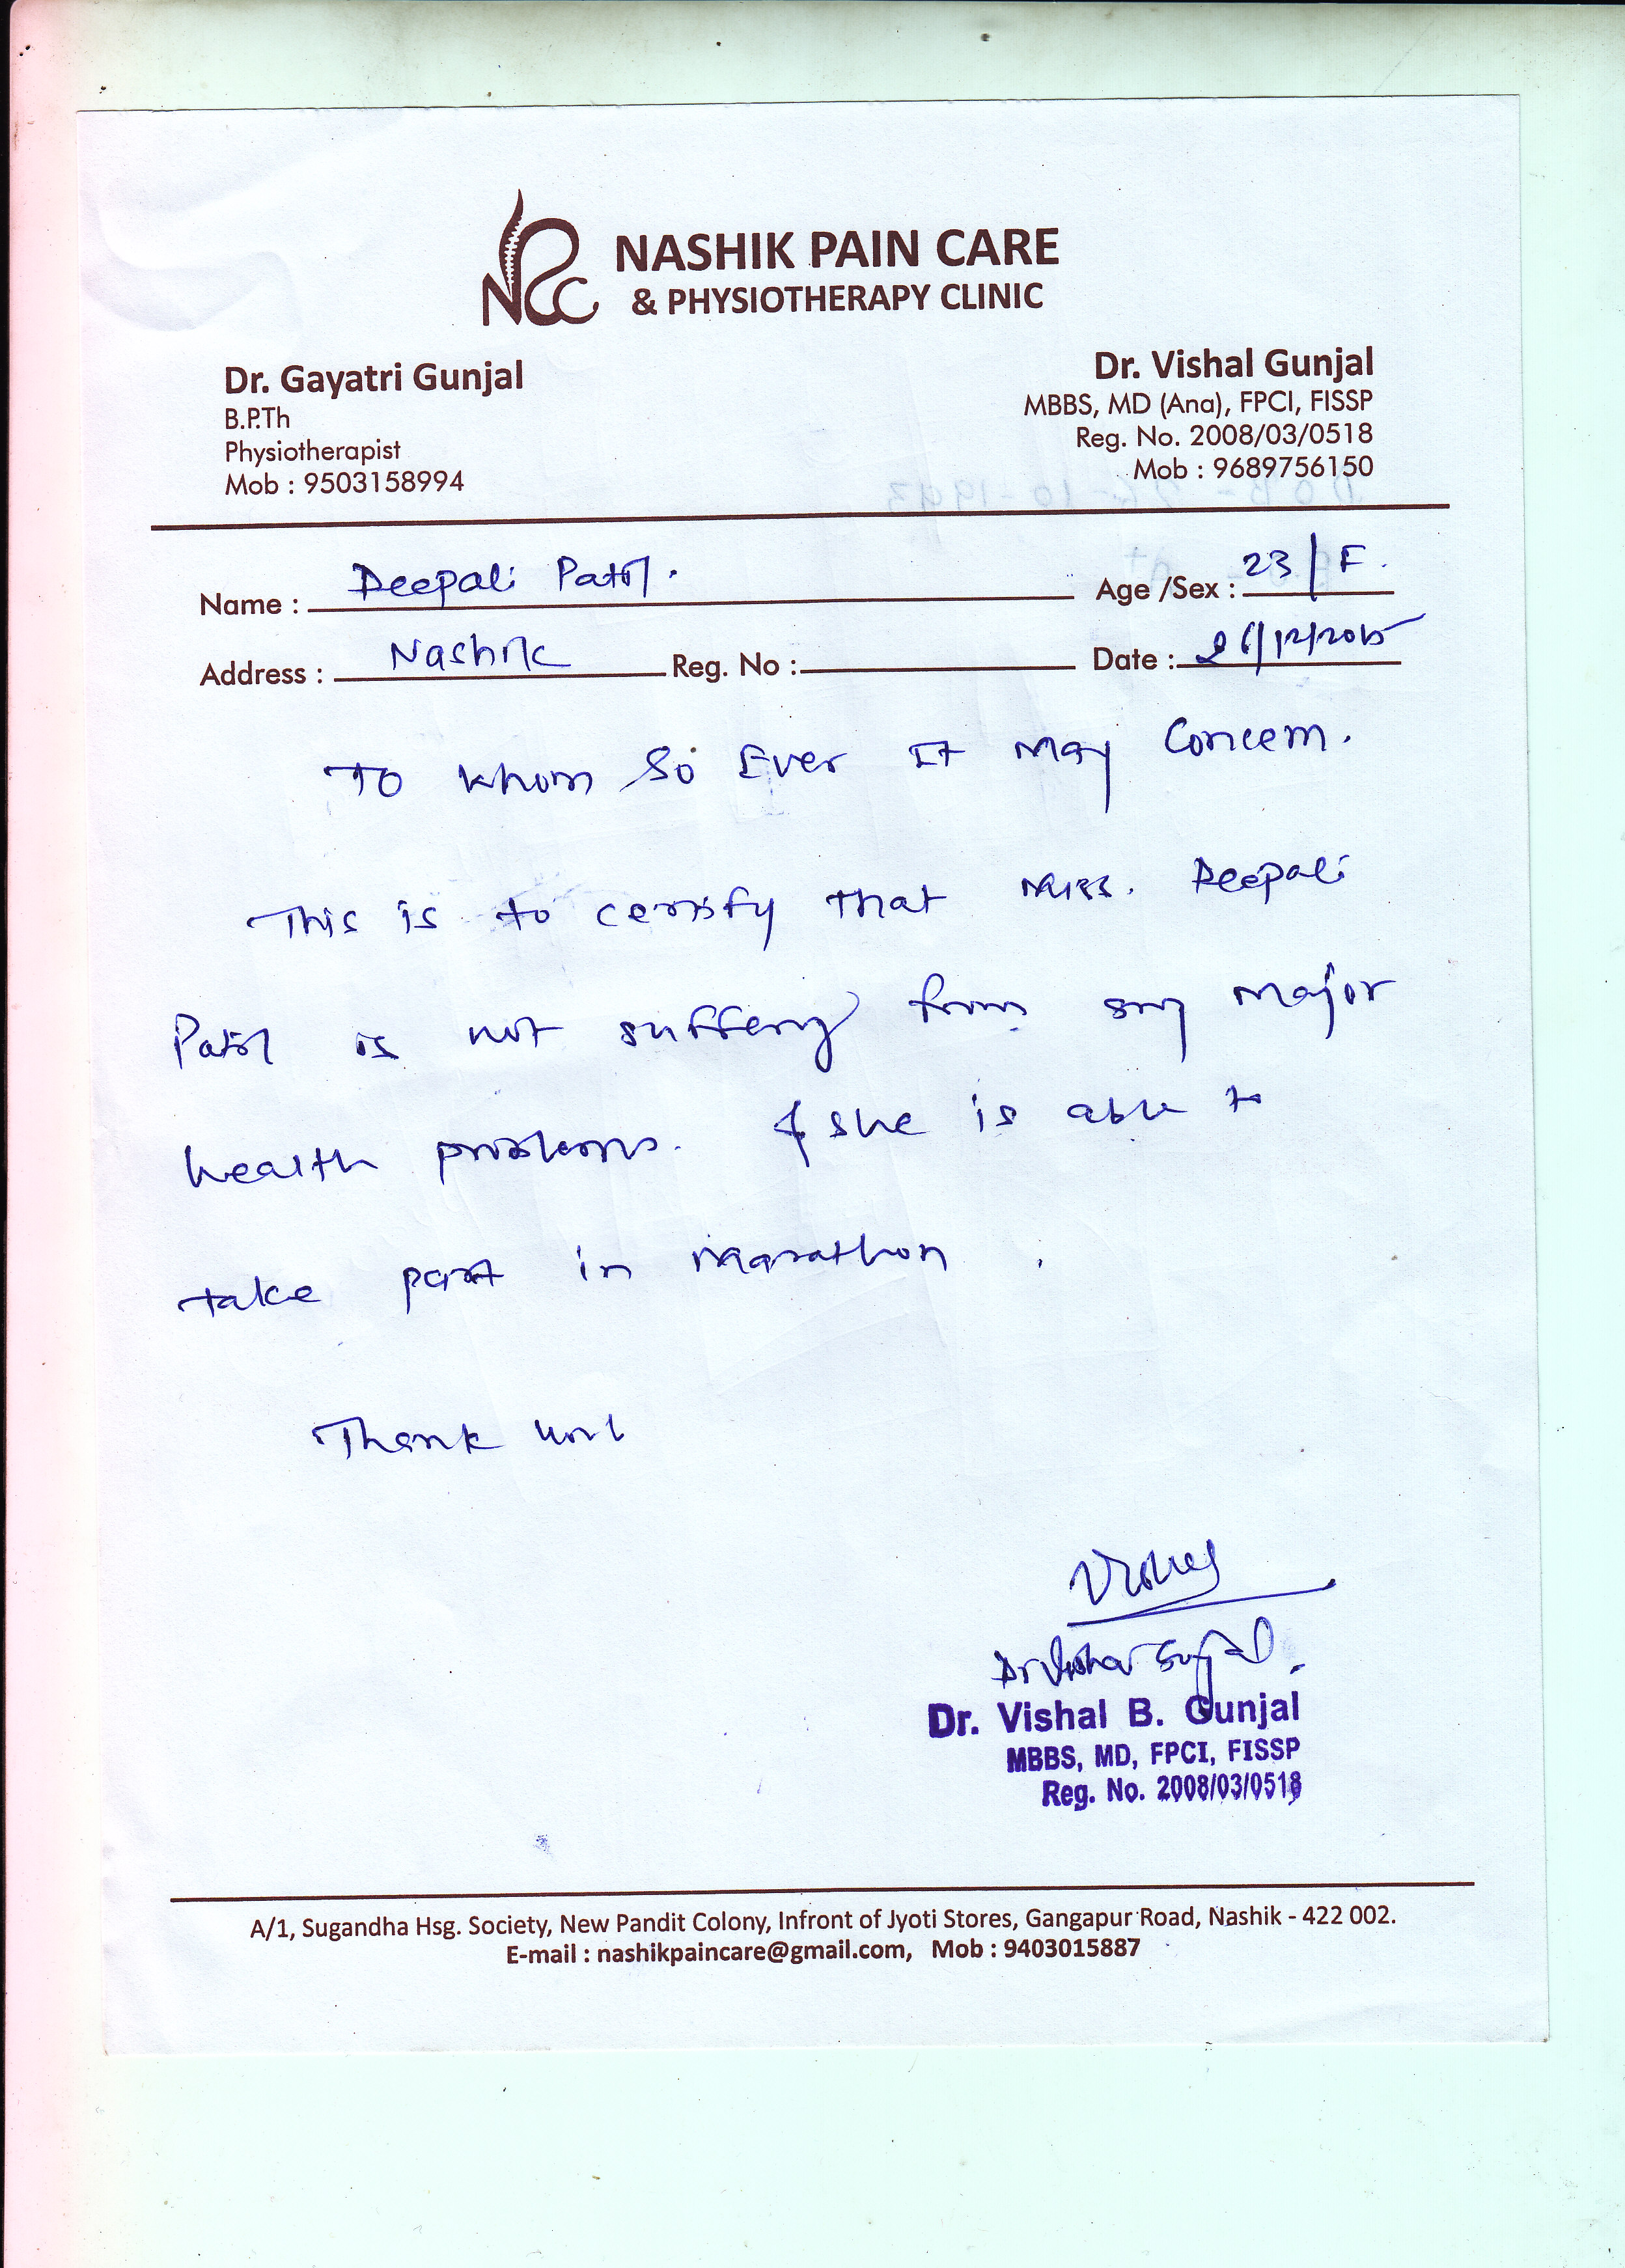 NPCC
NASHIK PAIN CARE
& PHYSIOTHERAPY CLINIC
Dr. Gayatri Gunjal
B.P.Th
Physiotherapist
Mob : 9503158994
Dr. Vishal Gunjal
MBBS, MD (Ana), FPCI, FISSP
Reg. No. 2008/03/0518
Mob : 9689756150
Name : Deepali Patil. Age /Sex : 23/F.
Address : Nashik Reg. No : Date : 26/12/2015
To Whom So Ever It May Concern.
This is to certify that Miss. Deepali
Patil is not suffering from any major
health problems. & she is able to
take part in Marathon .
Thank you
Vishal
Dr Vishal Gunjal.
Dr. Vishal B. Gunjal
MBBS, MD, FPCI, FISSP
Reg. No. 2008/03/0518
A/1, Sugandha Hsg. Society, New Pandit Colony, Infront of Jyoti Stores, Gangapur Road, Nashik - 422 002.
E-mail : nashikpaincare@gmail.com, Mob : 9403015887